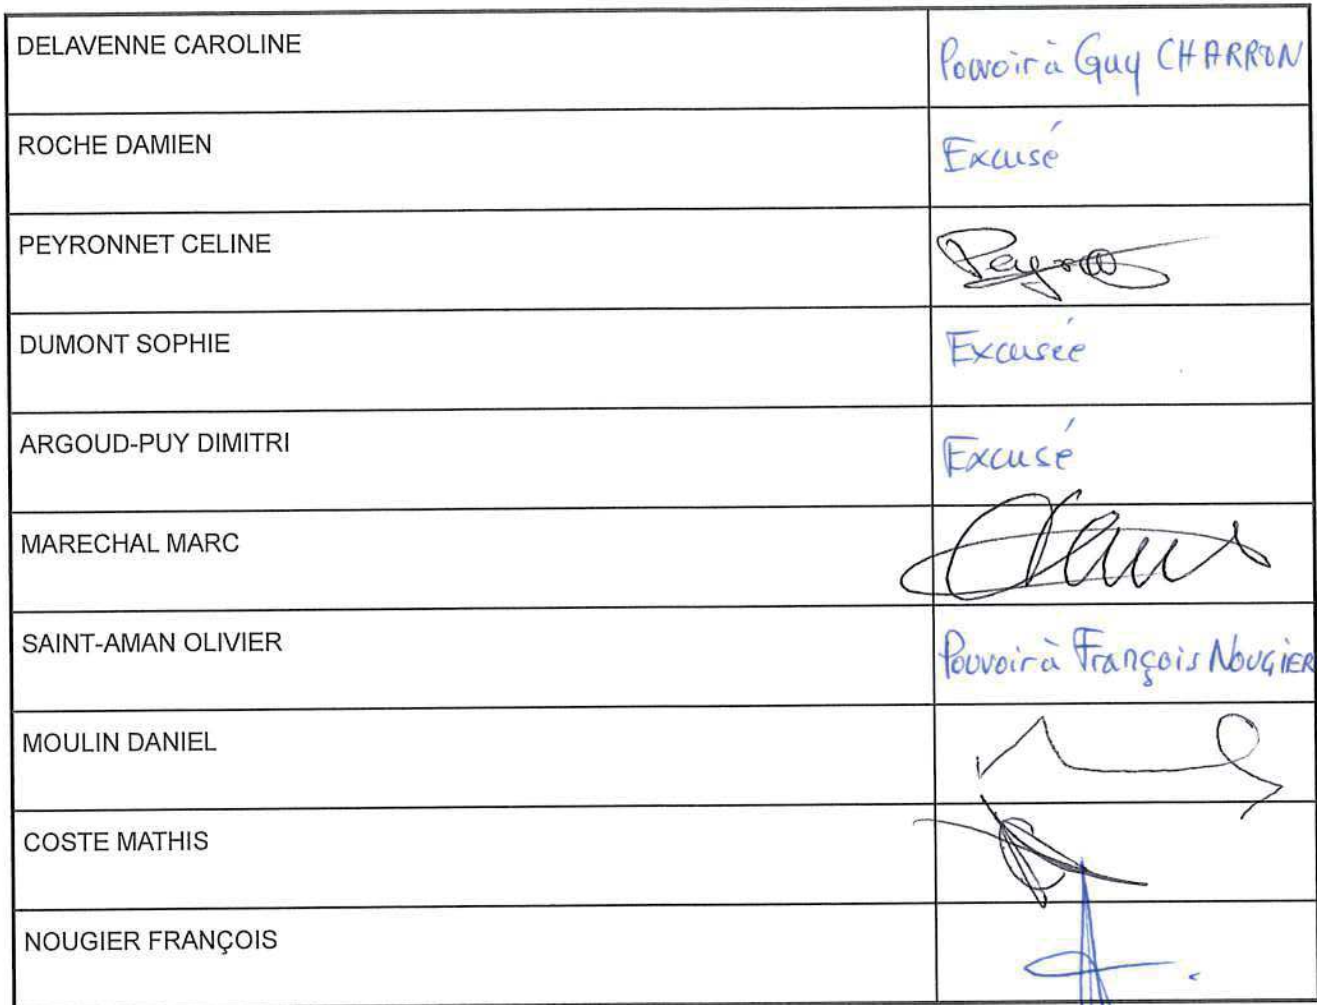 DELAVENNE CAROLINE Pouvoir à Guy CHARRON
ROCHE DAMIEN Excusé
PEYRONNET CELINE
DUMONT SOPHIE Excusée
ARGOUD-PUY DIMITRI Excusé
MARECHAL MARC
SAINT-AMAN OLIVIER Pouvoir à François NOUGIER
MOULIN DANIEL
COSTE MATHIS
NOUGIER FRANÇOIS